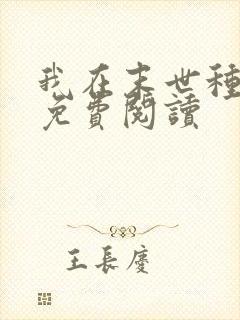 我在末世種
免費閱讀
王長慶